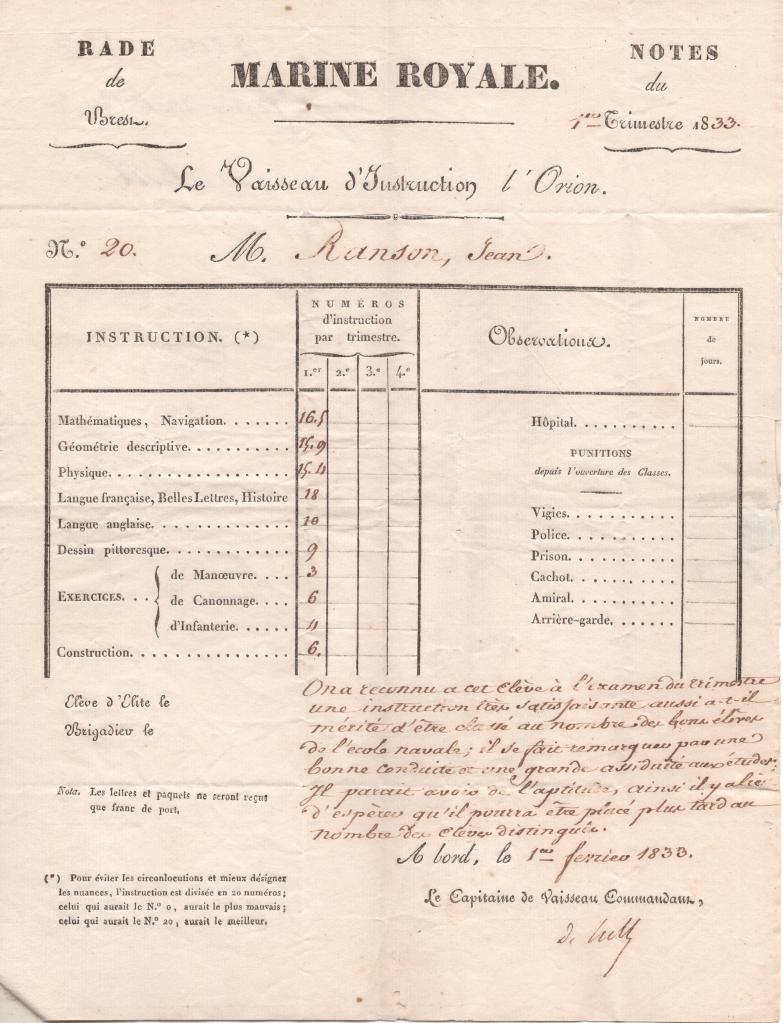 RADE
de
Brest.
MARINE ROYALE.
NOTES
du
1er Trimestre 1833.
Le Vaisseau d'Instruction l'Orion.
N.º 20. M. Ranson, Jean.
INSTRUCTION. (*)
NUMÉROS
d'instruction
par trimestre.
1.er 2.e 3.e 4.e
Observations.
NOMBRE
de
jours.
Mathématiques, Navigation. . . . . . . 16.5
Géométrie descriptive. . . . . . . . . . . 15.9
Physique. . . . . . . . . . . . . . . . . . . 15.4
Langue française, Belles Lettres, Histoire 18
Langue anglaise. . . . . . . . . . . . . . 10
Dessin pittoresque. . . . . . . . . . . . . 9
EXERCICES. . .
de Manœuvre. . . . . 3
de Canonnage. . . . . 6
d'Infanterie. . . . . . . 4
Construction. . . . . . . . . . . . . . . . . 6.
Hôpital. . . . . . . . . . .
PUNITIONS
depuis l'ouverture des Classes.
Vigies. . . . . . . . . . . .
Police. . . . . . . . . . . .
Prison. . . . . . . . . . . .
Cachot. . . . . . . . . . .
Amiral. . . . . . . . . . .
Arrière-garde. . . . . . .
Elève d'Elite le
Brigadier le
On a reconnu a cet Elève à l'examen du trimestre
une instruction très satisfaisante aussi a-t-il
mérité d'être classé au nombre des bons élèves
de l'école navale; il se fait remarquer par une
bonne conduite et une grande assiduité aux études.
Il parait avoir de l'aptitude, ainsi il y a lieu
d'espérer qu'il pourra être placé plus tard au
nombre des Elèves distingués.
Nota. Les lettres et paquets ne seront reçus
que franc de port.
A bord, le 1er fevrier 1833.
(*) Pour éviter les circonlocutions et mieux désigner
les nuances, l'instruction est divisée en 20 numéros;
celui qui aurait le N.º 0, aurait le plus mauvais;
celui qui aurait le N.º 20, aurait le meilleur.
Le Capitaine de Vaisseau Commandant,